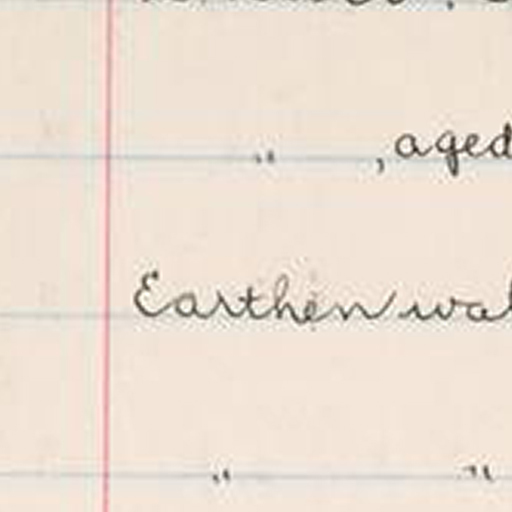 " , aged
Earthen wal
" "